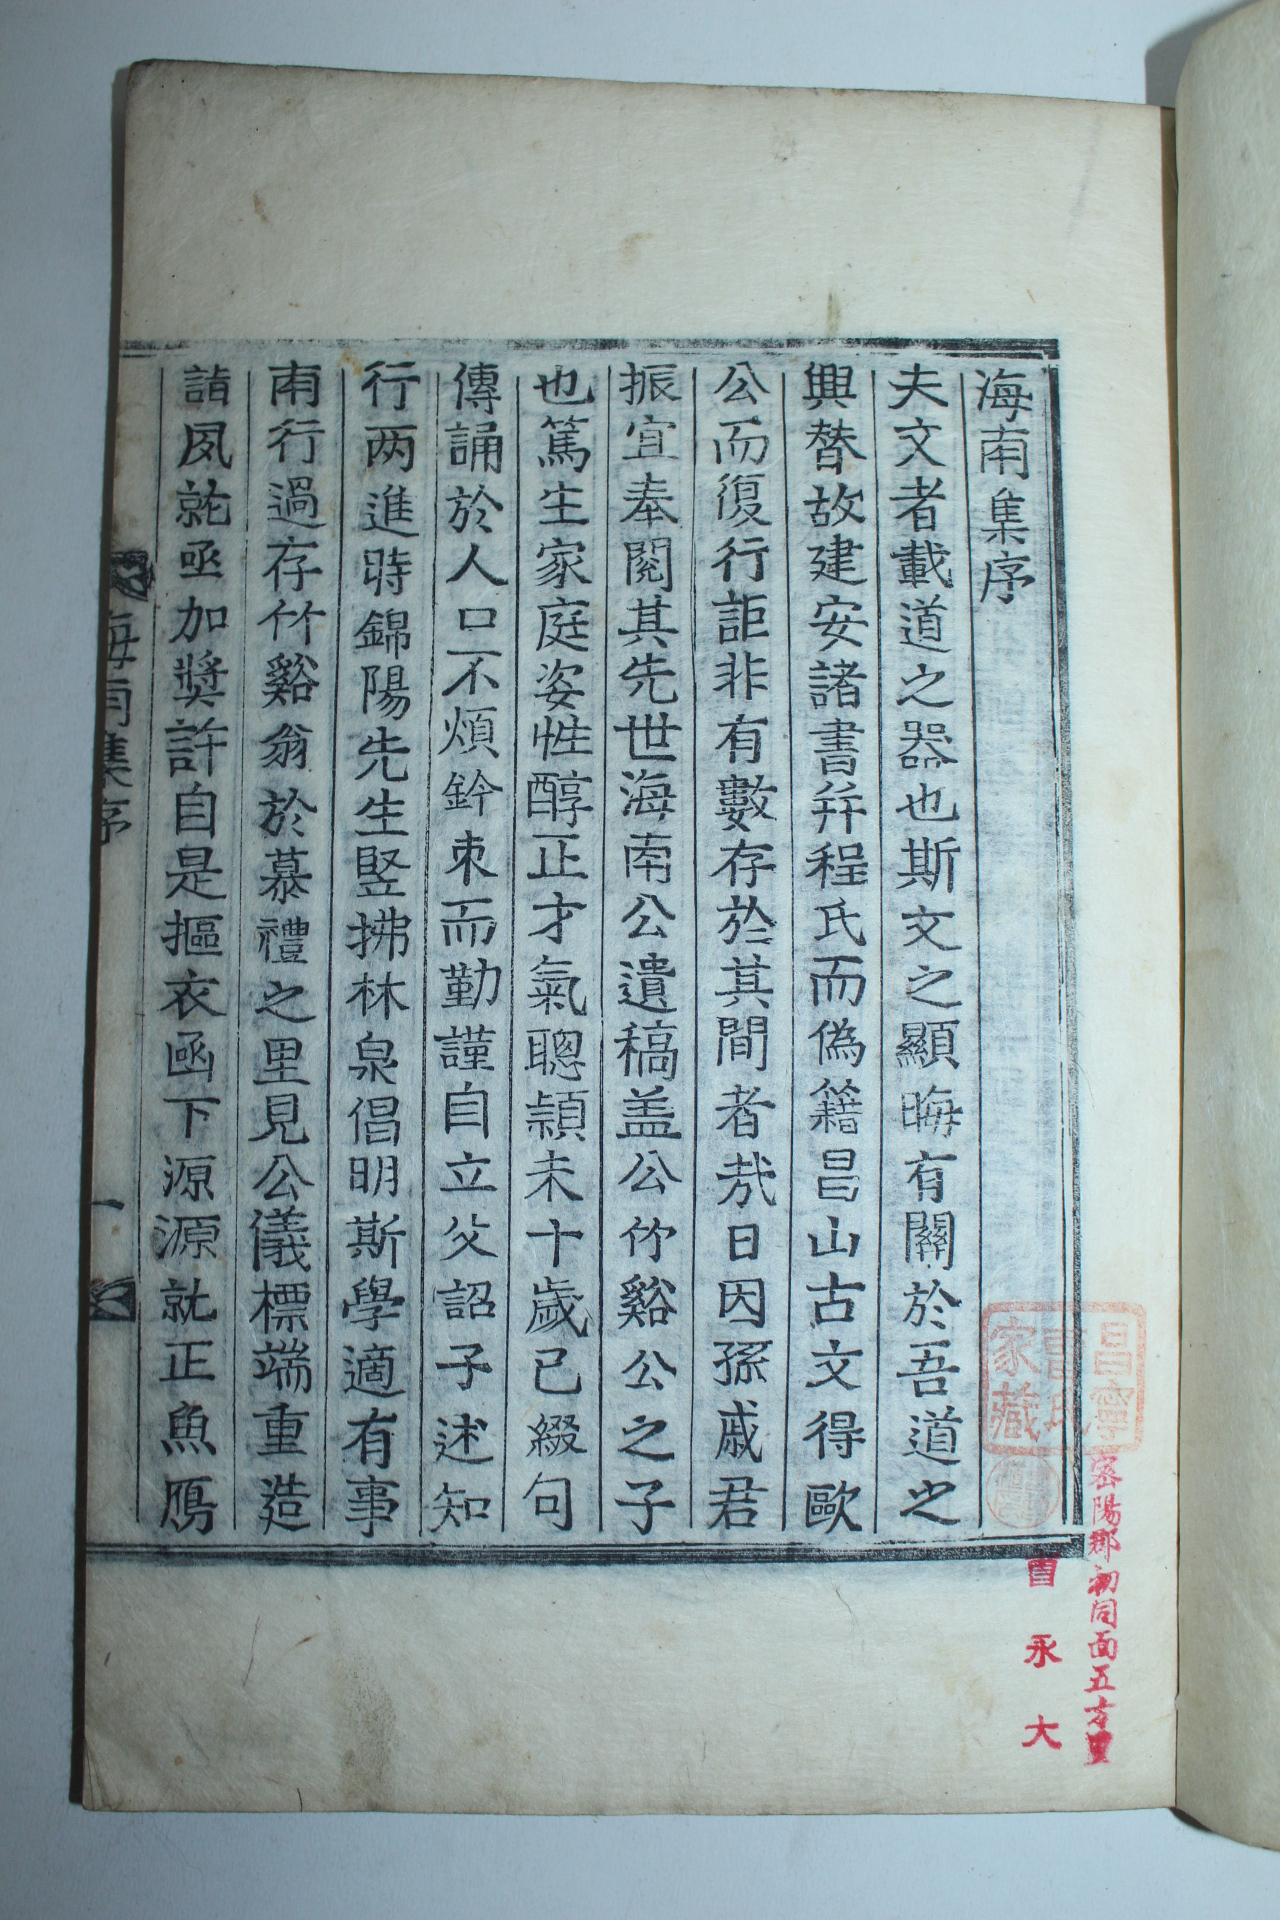 海南集序
夫文者載道之器也斯文之顯晦有關於吾道之
興替故建安諸書弁程氏而偽籍昌山古文得歐
公而復行詎非有數存於其間者哉日因孫戚君
振宜奉閱其先世海南公遺稿盖公竹谿公之子
也篤生家庭姿性醇正才氣聰頴未十歲已綴句
傳誦於人口不煩鈐束而勤謹自立父詔子述知
行两進時錦陽先生竪拂林泉倡明斯學適有事
南行過存竹谿翁於慕禮之里見公儀標端重造
詣夙就亟加奬許自是摳衣函下源源就正魚鴈
海南集序
一
昌寧
曺氏
家藏
密陽郡初同面五方里
曺永大